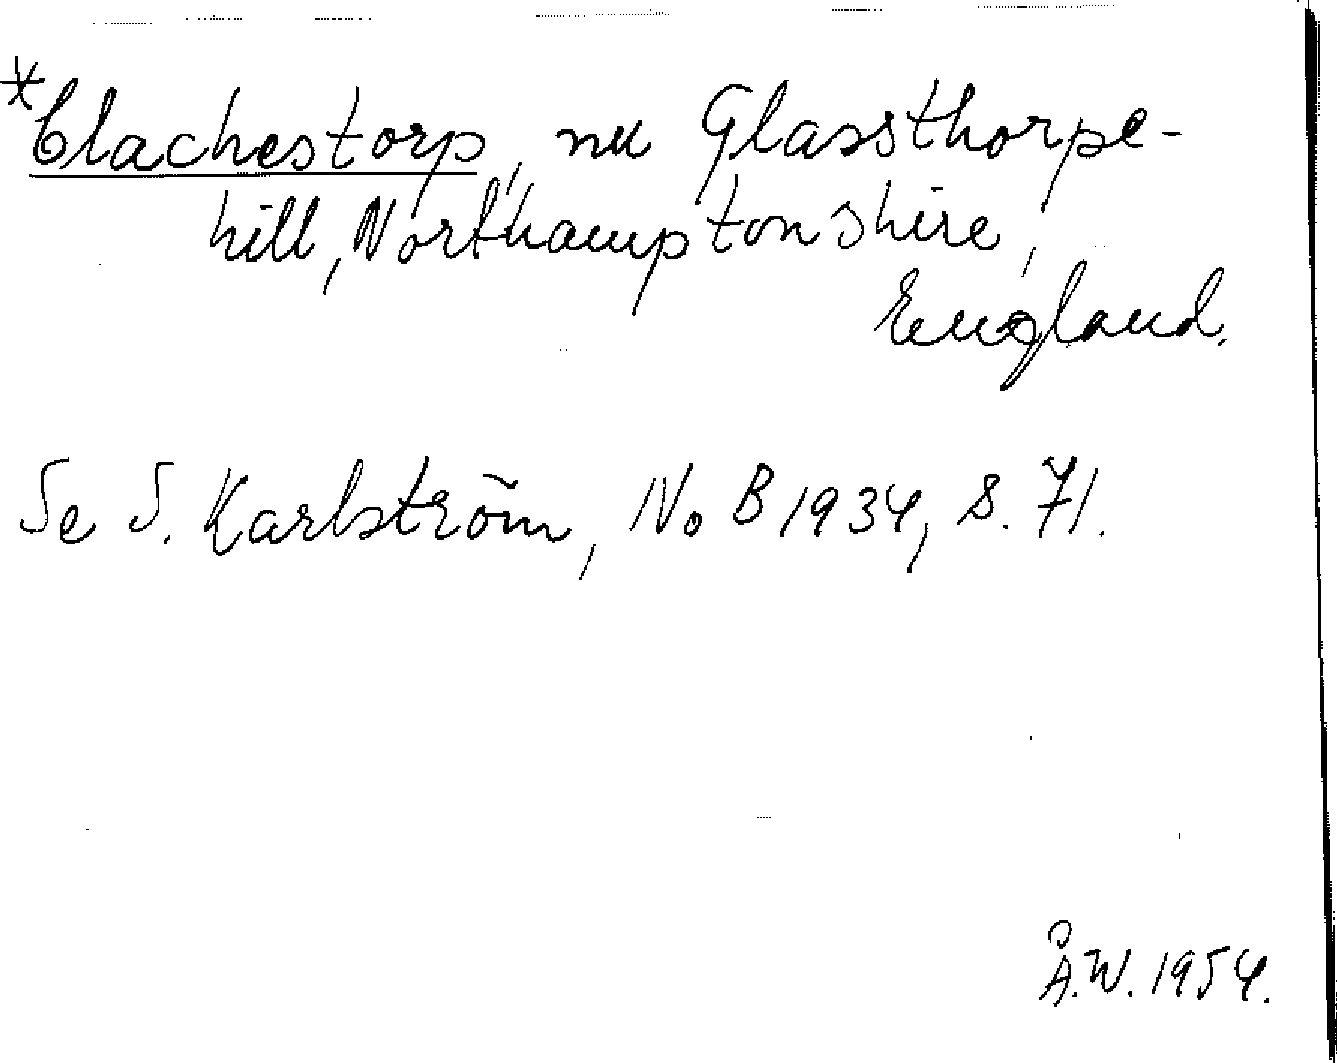 *Clachestorp, nu Glassthorpe-
hill, Northamptonshire,
England.
Se S. Karlström, NoB 1934, s. 71.
Å.W. 1954.